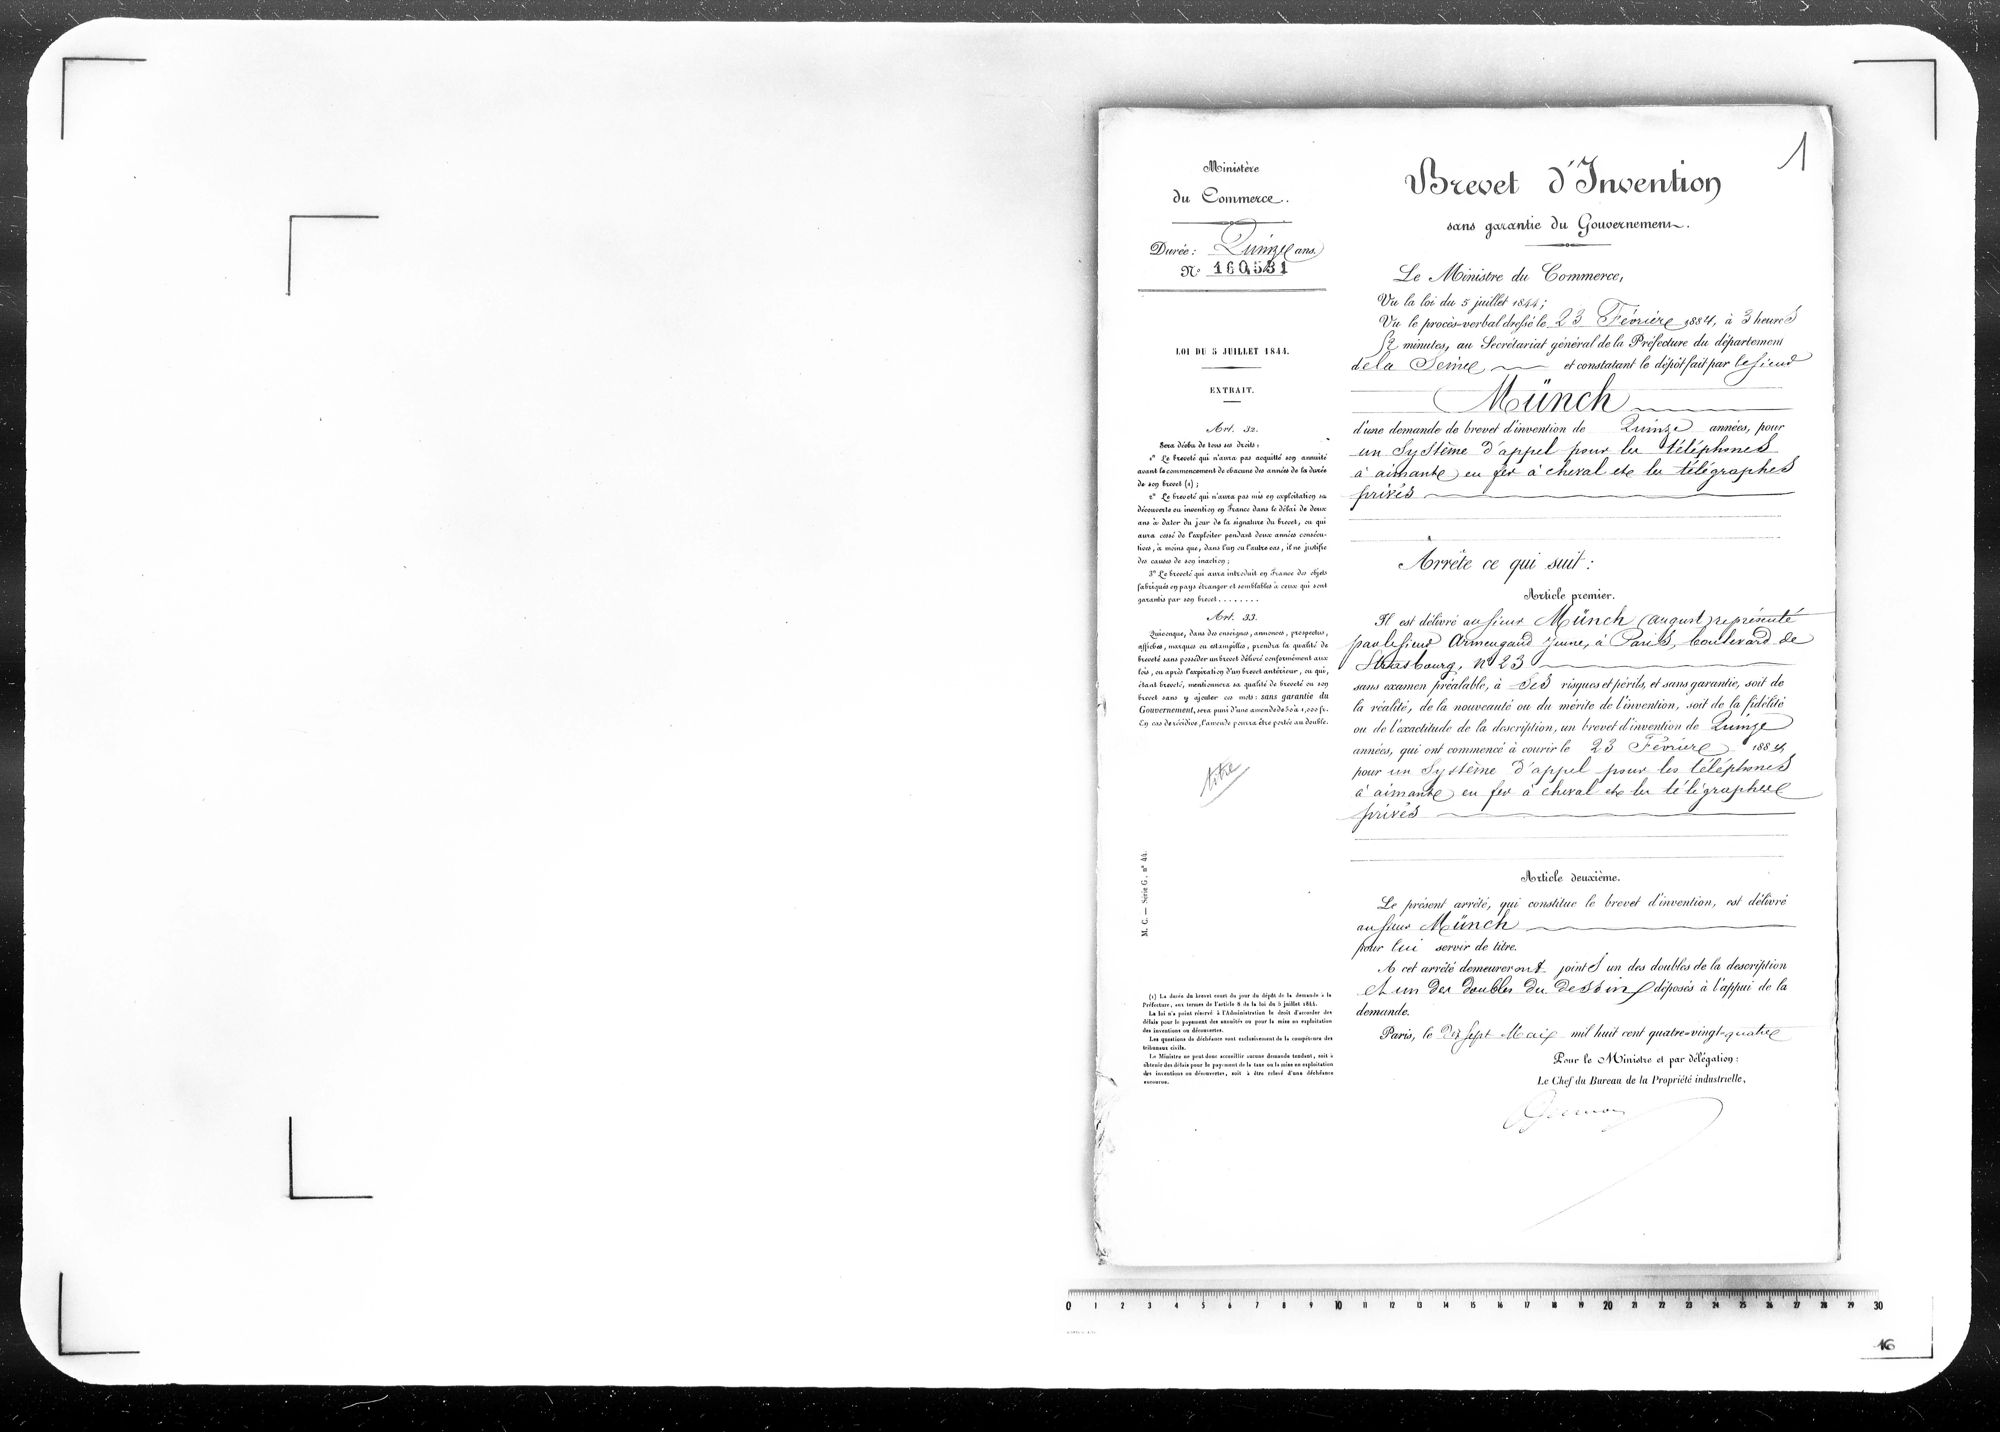 1
Ministère
du Commerce.
Durée : Quinze ans.
N° 160,531
LOI DU 5 JUILLET 1844.
EXTRAIT.
Art. 32.
Sera déchu de tous ses droits :
1° Le breveté qui n'aura pas acquitté son annuité
avant le commencement de chacune des années de la durée
de son brevet (1) ;
2° Le breveté qui n'aura pas mis en exploitation sa
découverte ou invention en France dans le délai de deux
ans à dater du jour de la signature du brevet, ou qui
aura cessé de l'exploiter pendant deux années consécu-
tives, à moins que, dans l'un ou l'autre cas, il ne justifie
des causes de son inaction ;
3° Le breveté qui aura introduit en France des objets
fabriqués en pays étranger et semblables à ceux qui sont
garantis par son brevet........
Art. 33.
Quiconque, dans des enseignes, annonces, prospectus,
affiches, marques ou estampilles, prendra la qualité de
breveté sans posséder un brevet délivré conformément aux
lois, ou après l'expiration d'un brevet antérieur, ou qui,
étant breveté, mentionnera sa qualité de breveté ou son
brevet sans y ajouter ces mots : sans garantie du
Gouvernement, sera puni d'une amende de 50 à 1,000 fr.
En cas de récidive, l'amende pourra être portée au double.
titre
M. C. — Série G, n° 44.
(1) La durée du brevet court du jour du dépôt de la demande à la
Préfecture, aux termes de l'article 8 de la loi du 5 juillet 1844.
La loi n'a point réservé à l'Administration le droit d'accorder des
délais pour le payement des annuités ou pour la mise en exploitation
des inventions ou découvertes.
Les questions de déchéance sont exclusivement de la compétence des
tribunaux civils.
Le Ministre ne peut donc accueillir aucune demande tendant, soit à
obtenir des délais pour le payement de la taxe ou la mise en exploitation
des inventions ou découvertes, soit à être relevé d'une déchéance
encourue.
Brevet d'Invention
sans garantie du Gouvernement.
Le Ministre du Commerce,
Vu la loi du 5 juillet 1844 ;
Vu le procès-verbal dressé le 23 Février 1884, à 3 heures
minutes, au Secrétariat général de la Préfecture du département
de la Seine et constatant le dépôt fait par le sieur
Münch
d'une demande de brevet d'invention de Quinze années, pour
un système d'appel pour les téléphones
à aimants en fer à cheval et les télégraphes
privés
Arrête ce qui suit :
Article premier.
Il est délivré au sieur Münch (august) représenté
par le sieur Armengaud jeune, à Paris, boulevard de
Strasbourg, n° 23
sans examen préalable, à ses risques et périls, et sans garantie, soit de
la réalité, de la nouveauté ou du mérite de l'invention, soit de la fidélité
ou de l'exactitude de la description, un brevet d'invention de Quinze
années, qui ont commencé à courir le 23 Février 1884,
pour un système d'appel pour les téléphones
à aimants en fer à cheval et les télégraphes
privés
Article deuxième.
Le présent arrêté, qui constitue le brevet d'invention, est délivré
au sieur Münch
pour lui servir de titre.
A cet arrêté demeureront joints un des doubles de la description
et un des doubles du dessin déposés à l'appui de la
demande.
Paris, le dix sept Mai mil huit cent quatre-vingt-quatre
Pour le Ministre et par délégation :
Le Chef du Bureau de la Propriété industrielle,
0 1 2 3 4 5 6 7 8 9 10 11 12 13 14 15 16 17 18 19 20 21 22 23 24 25 26 27 28 29 30
16